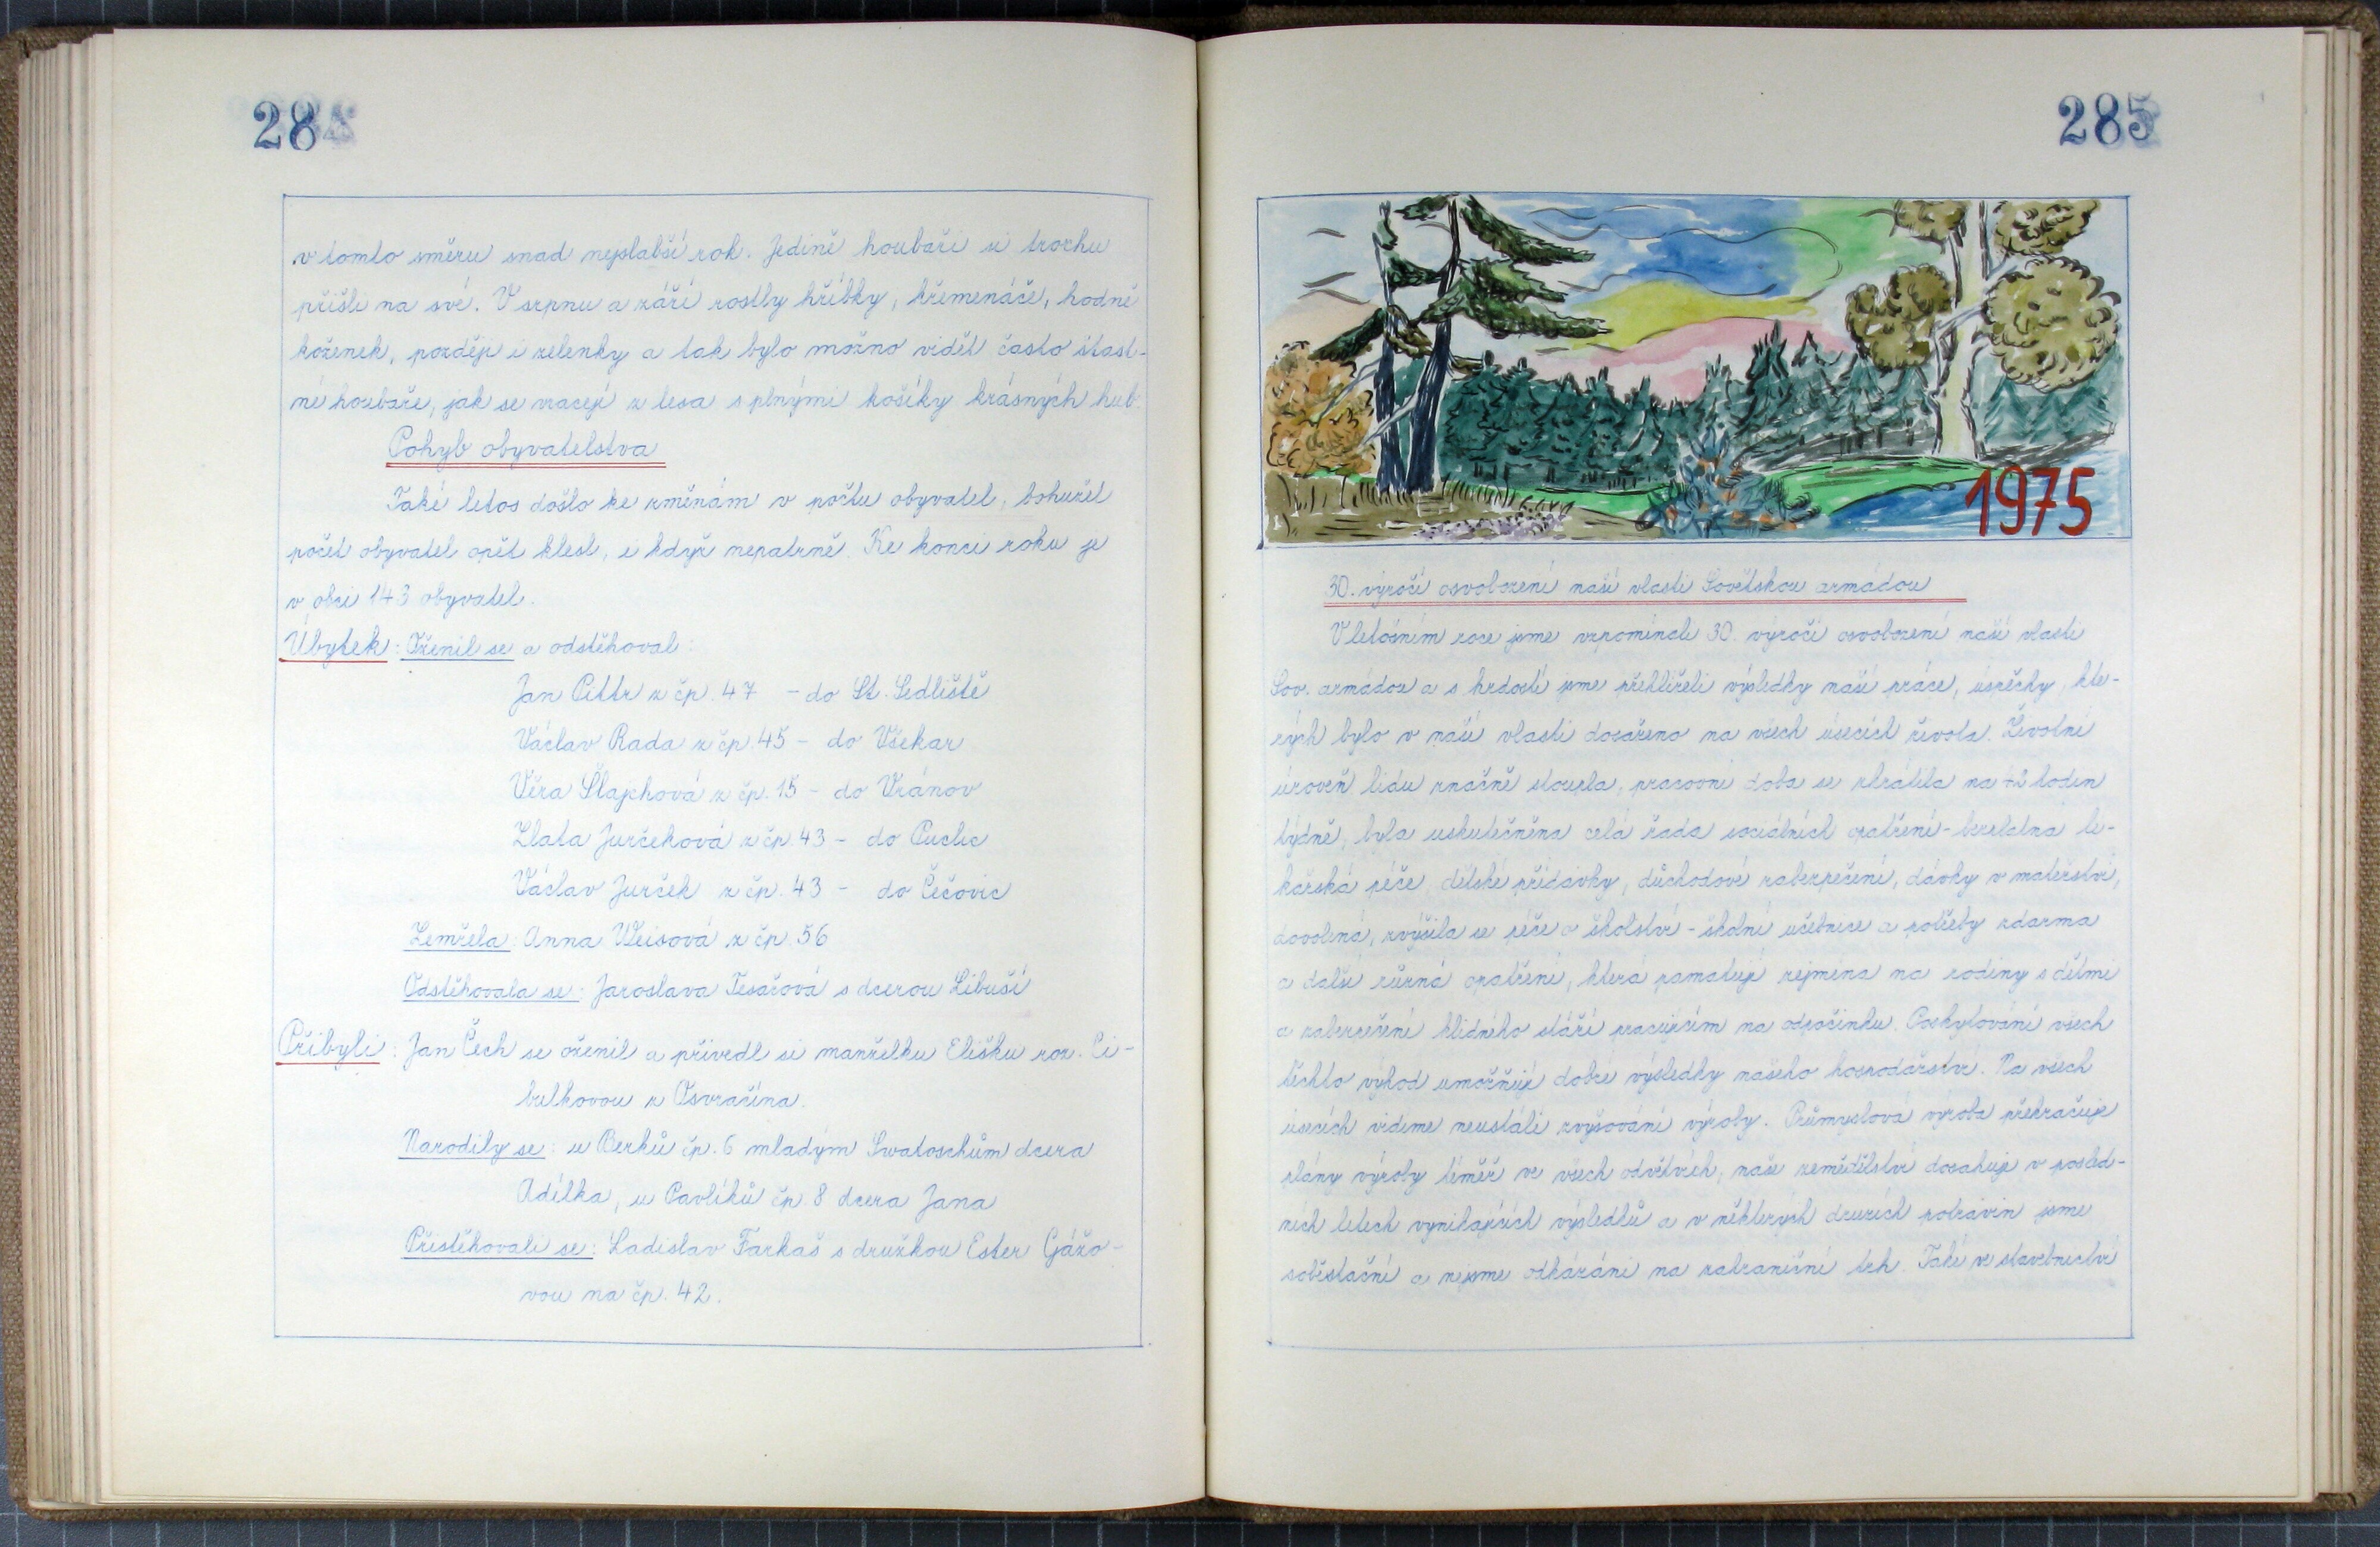 284
v tomto směru snad nejslabší rok. Jedině houbaři si trochu
přišli na své. V srpnu a září rostly hříbky, křemenáče, hodně
koženek, později i zelenky a tak bylo možno vidět často šťast-
né houbaře, jak se vracejí z lesa s plnými košíky krásných hub.
Pohyb obyvatelstva
Také letos došlo ke změnám v počtu obyvatel, bohužel
počet obyvatel opět klesl, i když nepatrně. Ke konci roku je
v obci 143 obyvatel.
Úbytek: Oženil se a odstěhoval:
Jan Pittr z čp. 47 - do St. Sedliště
Václav Rada z čp. 45 - do Všekar
Věra Šlajchová z čp. 15 - do Vránov
Zlata Jurčeková z čp. 43 - do Puclic
Václav Jurček z čp. 43 - do Čečovic
Zemřela: Anna Weisová z čp. 56
Odstěhovala se: Jaroslava Tesařová s dcerou Libuší
Přibyli: Jan Čech se oženil a přivedl si manželku Elišku roz. Ci-
bulkovou z Osvračína.
Narodily se: u Berků čp. 6 mladým Swatoschům dcera
Adélka, u Pavlíků čp. 8 dcera Jana
Přistěhovali se: Ladislav Farkaš s družkou Ester Gážo-
vou na čp. 42.
285
1975
30. výročí osvobození naší vlasti Sovětskou armádou
V letošním roce jsme vzpomínali 30. výročí osvobození naší vlasti
Sov. armádou a s hrdostí jsme přehlíželi výsledky naší práce, úspěchy, kte-
rých bylo v naší vlasti dosaženo na všech úsecích života. Životní
úroveň lidu značně stoupla, pracovní doba se zkrátila na 42 hodin
týdně, byla uskutečněna celá řada sociálních opatření - bezplatná lé-
kařská péče, dětské přídavky, důchodové zabezpečení, dávky v mateřství,
dovolená, zvýšila se péče o školství - školní učebnice a potřeby zdarma
a další různá opatření, která pamatují zejména na rodiny s dětmi
a zabezpečení klidného stáří pracujícím na odpočinku. Poskytování všech
těchto výhod umožňují dobré výsledky našeho hospodářství. Na všech
úsecích vidíme neustálé zvyšování výroby. Průmyslová výroba překračuje
plány výroby téměř ve všech odvětvích, naše zemědělství dosahuje v posled-
ních letech vynikajících výsledků a v některých druzích potravin jsme
soběstační a nejsme odkázáni na zahraniční trh. Také ve stavebnictví